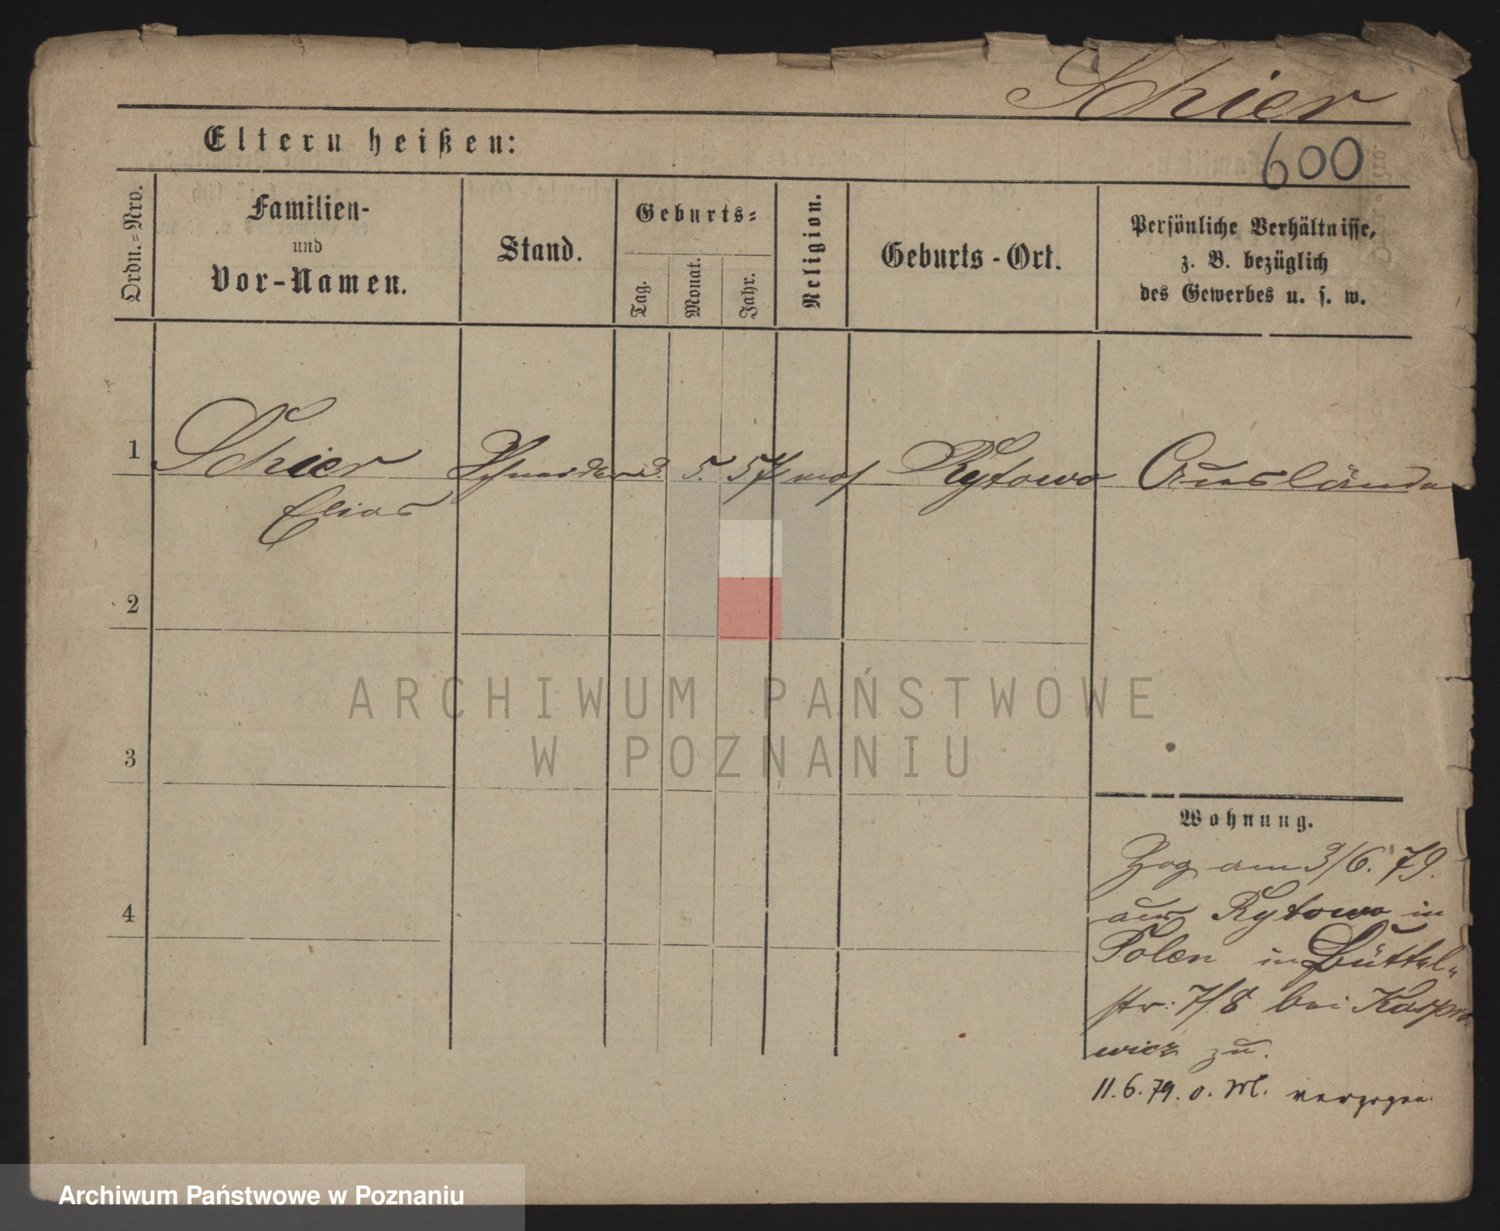 Schier
600
Eltern heißen:
Ordn.=Nro.
Familien-
und
Vor-Namen.
Stand.
Geburts=
Tag.
Monat.
Jahr.
Religion.
Geburts-Ort.
Persönliche Verhältnisse,
z. B. bezüglich
des Gewerbes u. s. w.
1 Schier Schneider 5. 57 mos Rytowo Ausländer
Elias
2
3
4
ARCHIWUM PAŃSTWOWE
W POZNANIU
Wohnung.
Zog am 3/6. 79.
aus Rytowo in
Polen in Büttel-
str: 7/8 bei Kaspro
wicz zu.
11.6.79. o. M. verzogen.
Archiwum Państwowe w Poznaniu